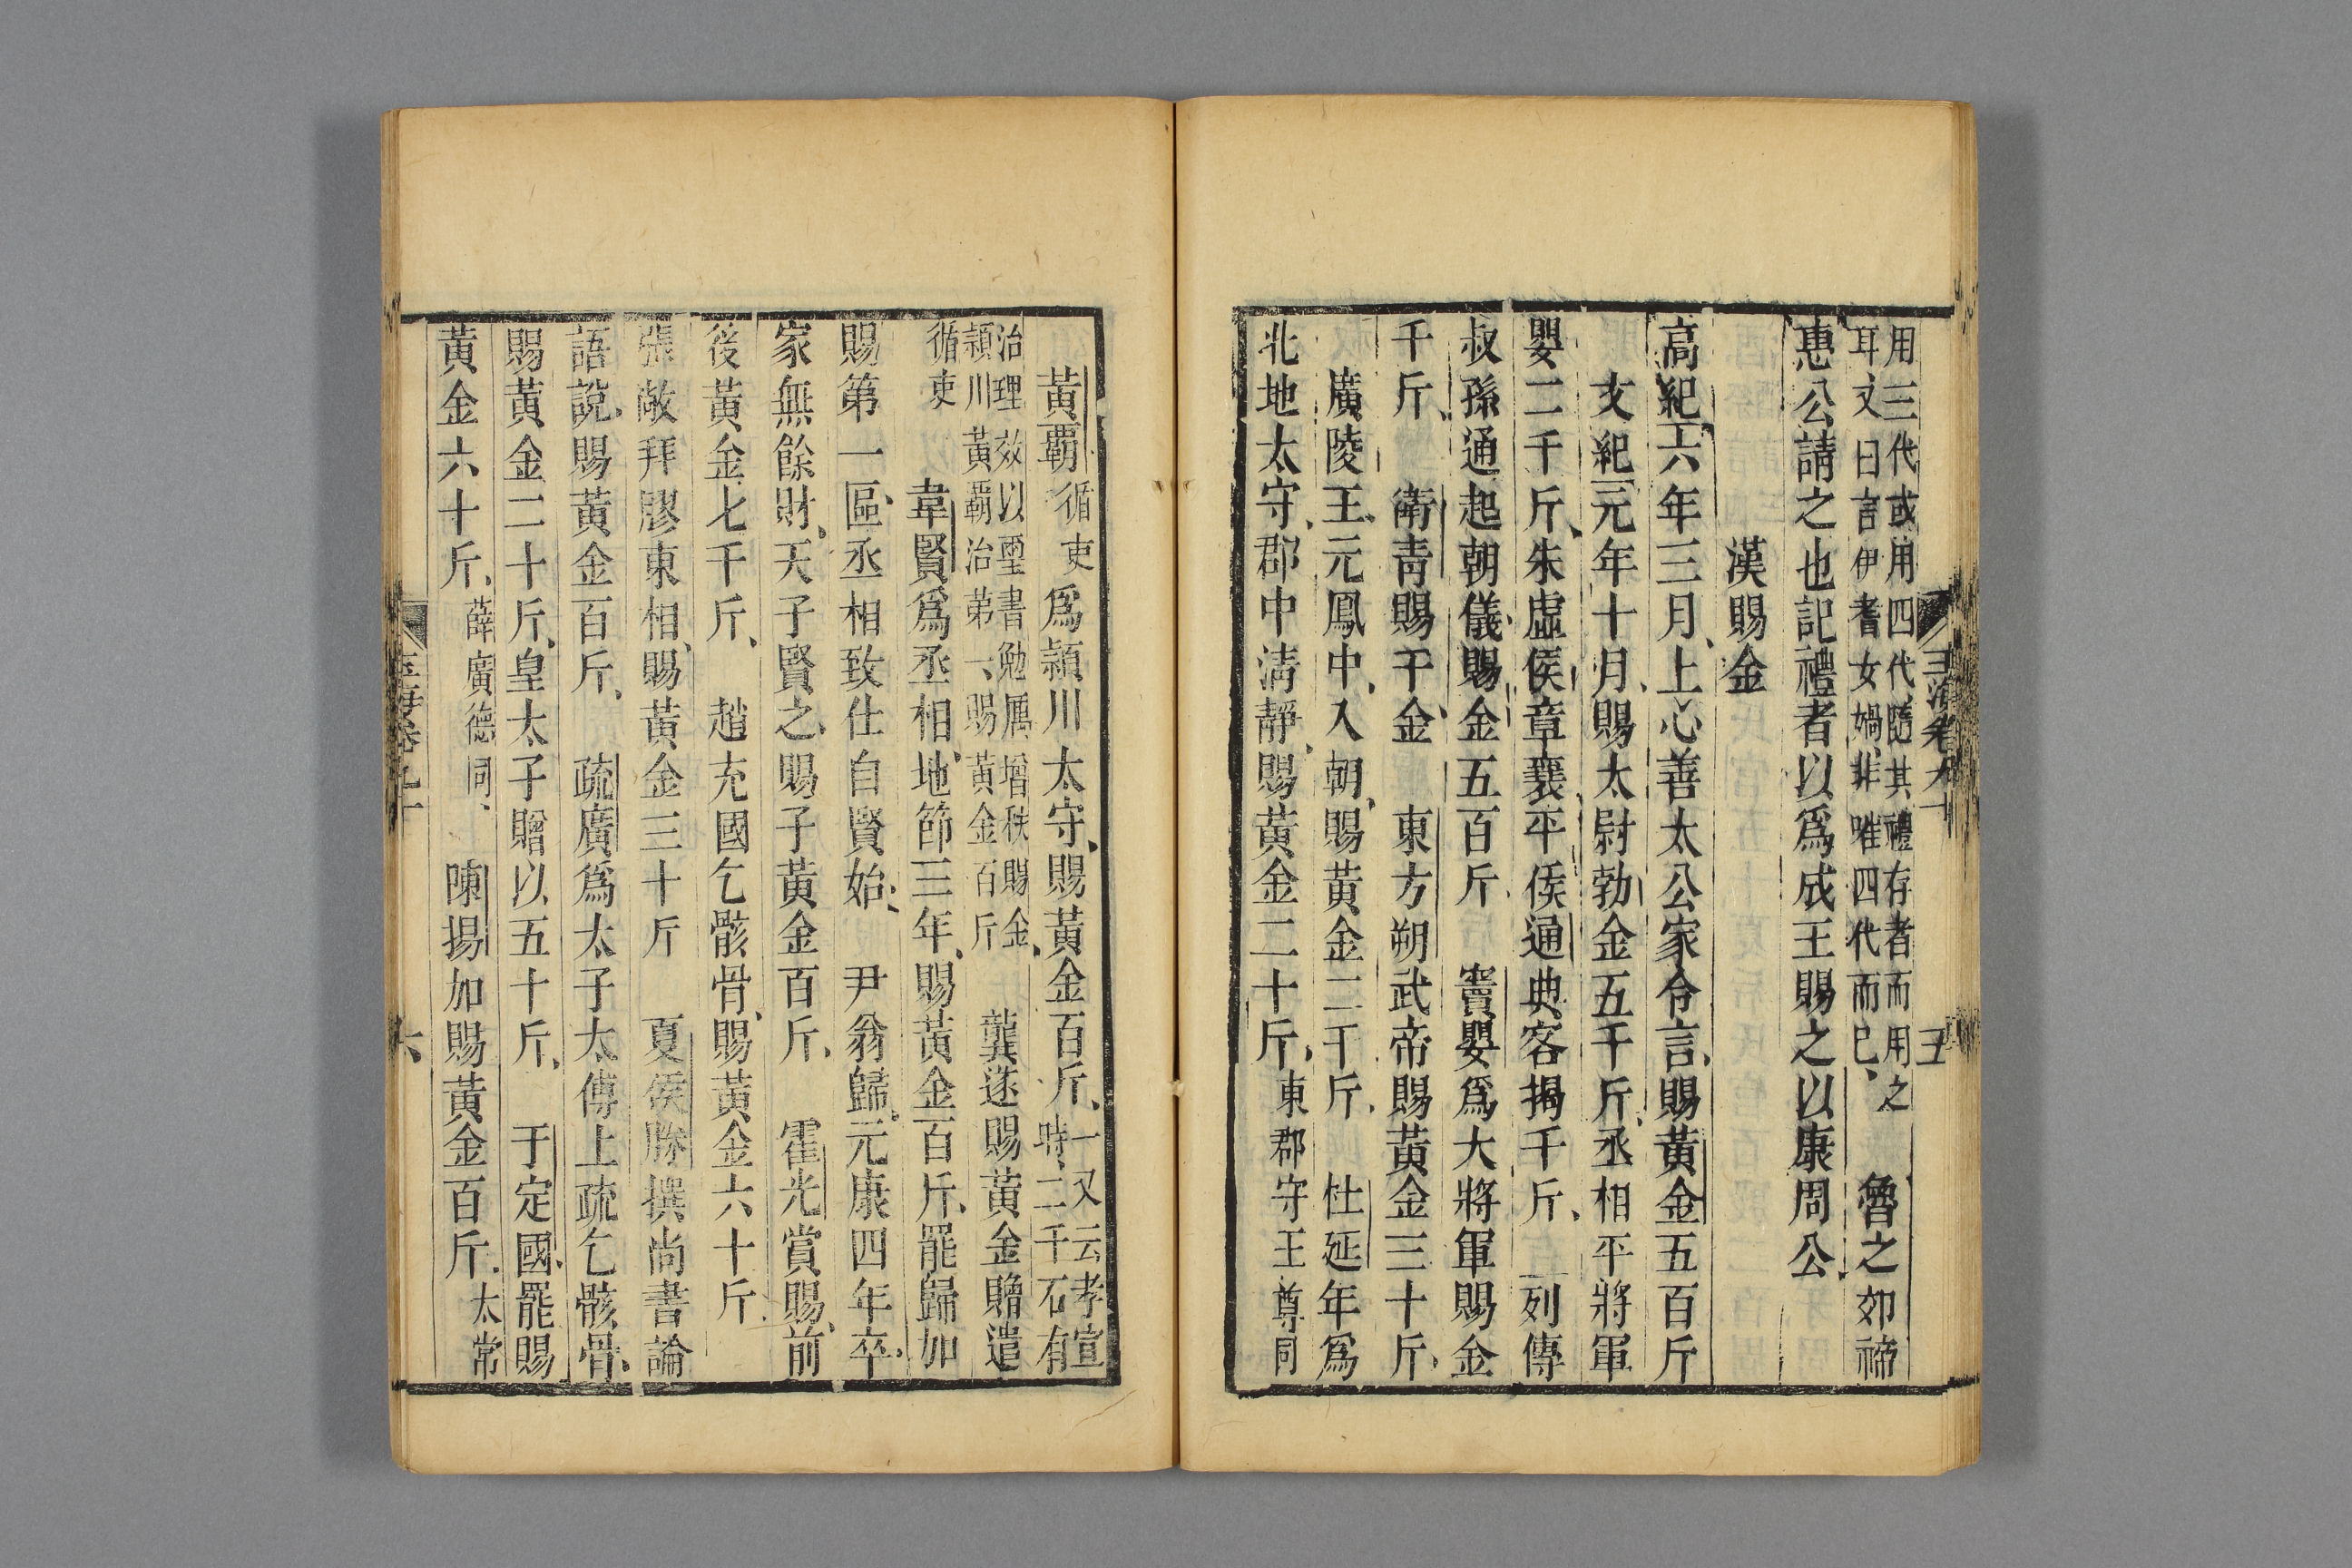 用三代或用四代隨其禮存者而用之
耳又曰言伊耆女媧非唯四代而已
魯之郊禘
惠公請之也記禮者以爲成王賜之以康周公
漢賜金
高紀六年三月上心善太公家令言賜黃金五百斤
文紀元年十月賜太尉勃金五千斤丞相平將軍
嬰二千斤朱虛侯章襄平侯通典客揭千斤 列傳
叔孫通起朝儀賜金五百斤 竇嬰爲大將軍賜金
千斤 衛青賜千金 東方朔武帝賜黃金三十斤
廣陵王元鳳中入朝賜黃金二千斤 杜延年爲
北地太守郡中淸靜賜黃金二十斤東郡守王尊同
五
黃覇循吏爲潁川太守賜黃金百斤一時又云孝宣二千石有
治理效以璽書勉厲增秩賜金
潁川黃覇治第一賜黃金百斤
循吏
龔遂賜黃金贈遣
韋賢爲丞相地節三年賜黃金百斤罷歸加
賜第一區丞相致仕自賢始 尹翁歸元康四年卒
家無餘財天子賢之賜子黃金百斤 霍光賞賜前
後黃金七千斤 趙充國乞骸骨賜黃金六十斤
張敞拜膠東相賜黃金三十斤 夏侯勝撰尚書論
語說賜黃金百斤 疏廣爲太子太傅上疏乞骸骨
賜黃金二十斤皇太子贈以五十斤 于定國罷賜
黃金六十斤薛廣德同 陳揚加賜黃金百斤太常
六